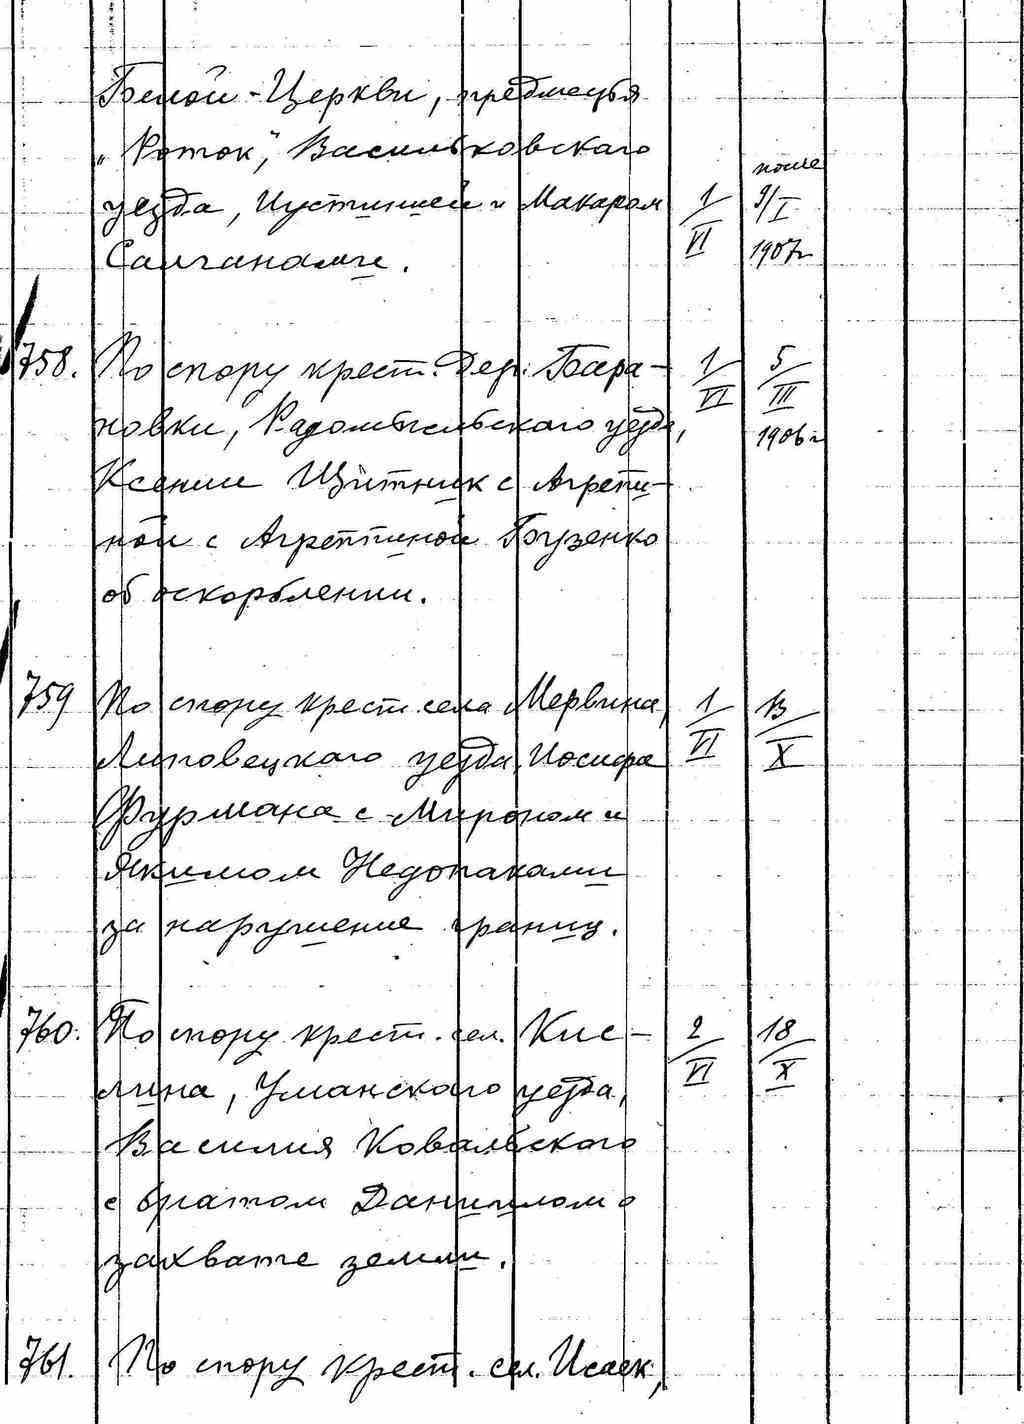 Белой-Церкви, предместья
"Роток", Васильковского
уезда, Иустинией и Макаром 1/VI после 9/I 1907г
Салганами.
758. По спору крест. Дер. Бара- 1/VI 5/III 1906г
новки, Радомысльского уезда,
Ксении Щитник с Агрепи-
ной с Агреппиной Бузенко
об оскорблении.
759 По спору крест. села Мервина, 1/VI 13/X
Липовецкого уезда, Иосифа
Фурмана с Мироном и
Якимом Недопаками
за нарушение границ.
760. По спору крест. сел. Кис- 2/VI 18/X
лина, Уманского уезда,
Василия Ковальского
с братом Даниилом о
захвате земли.
761. По спору крест. сел. Исаек,